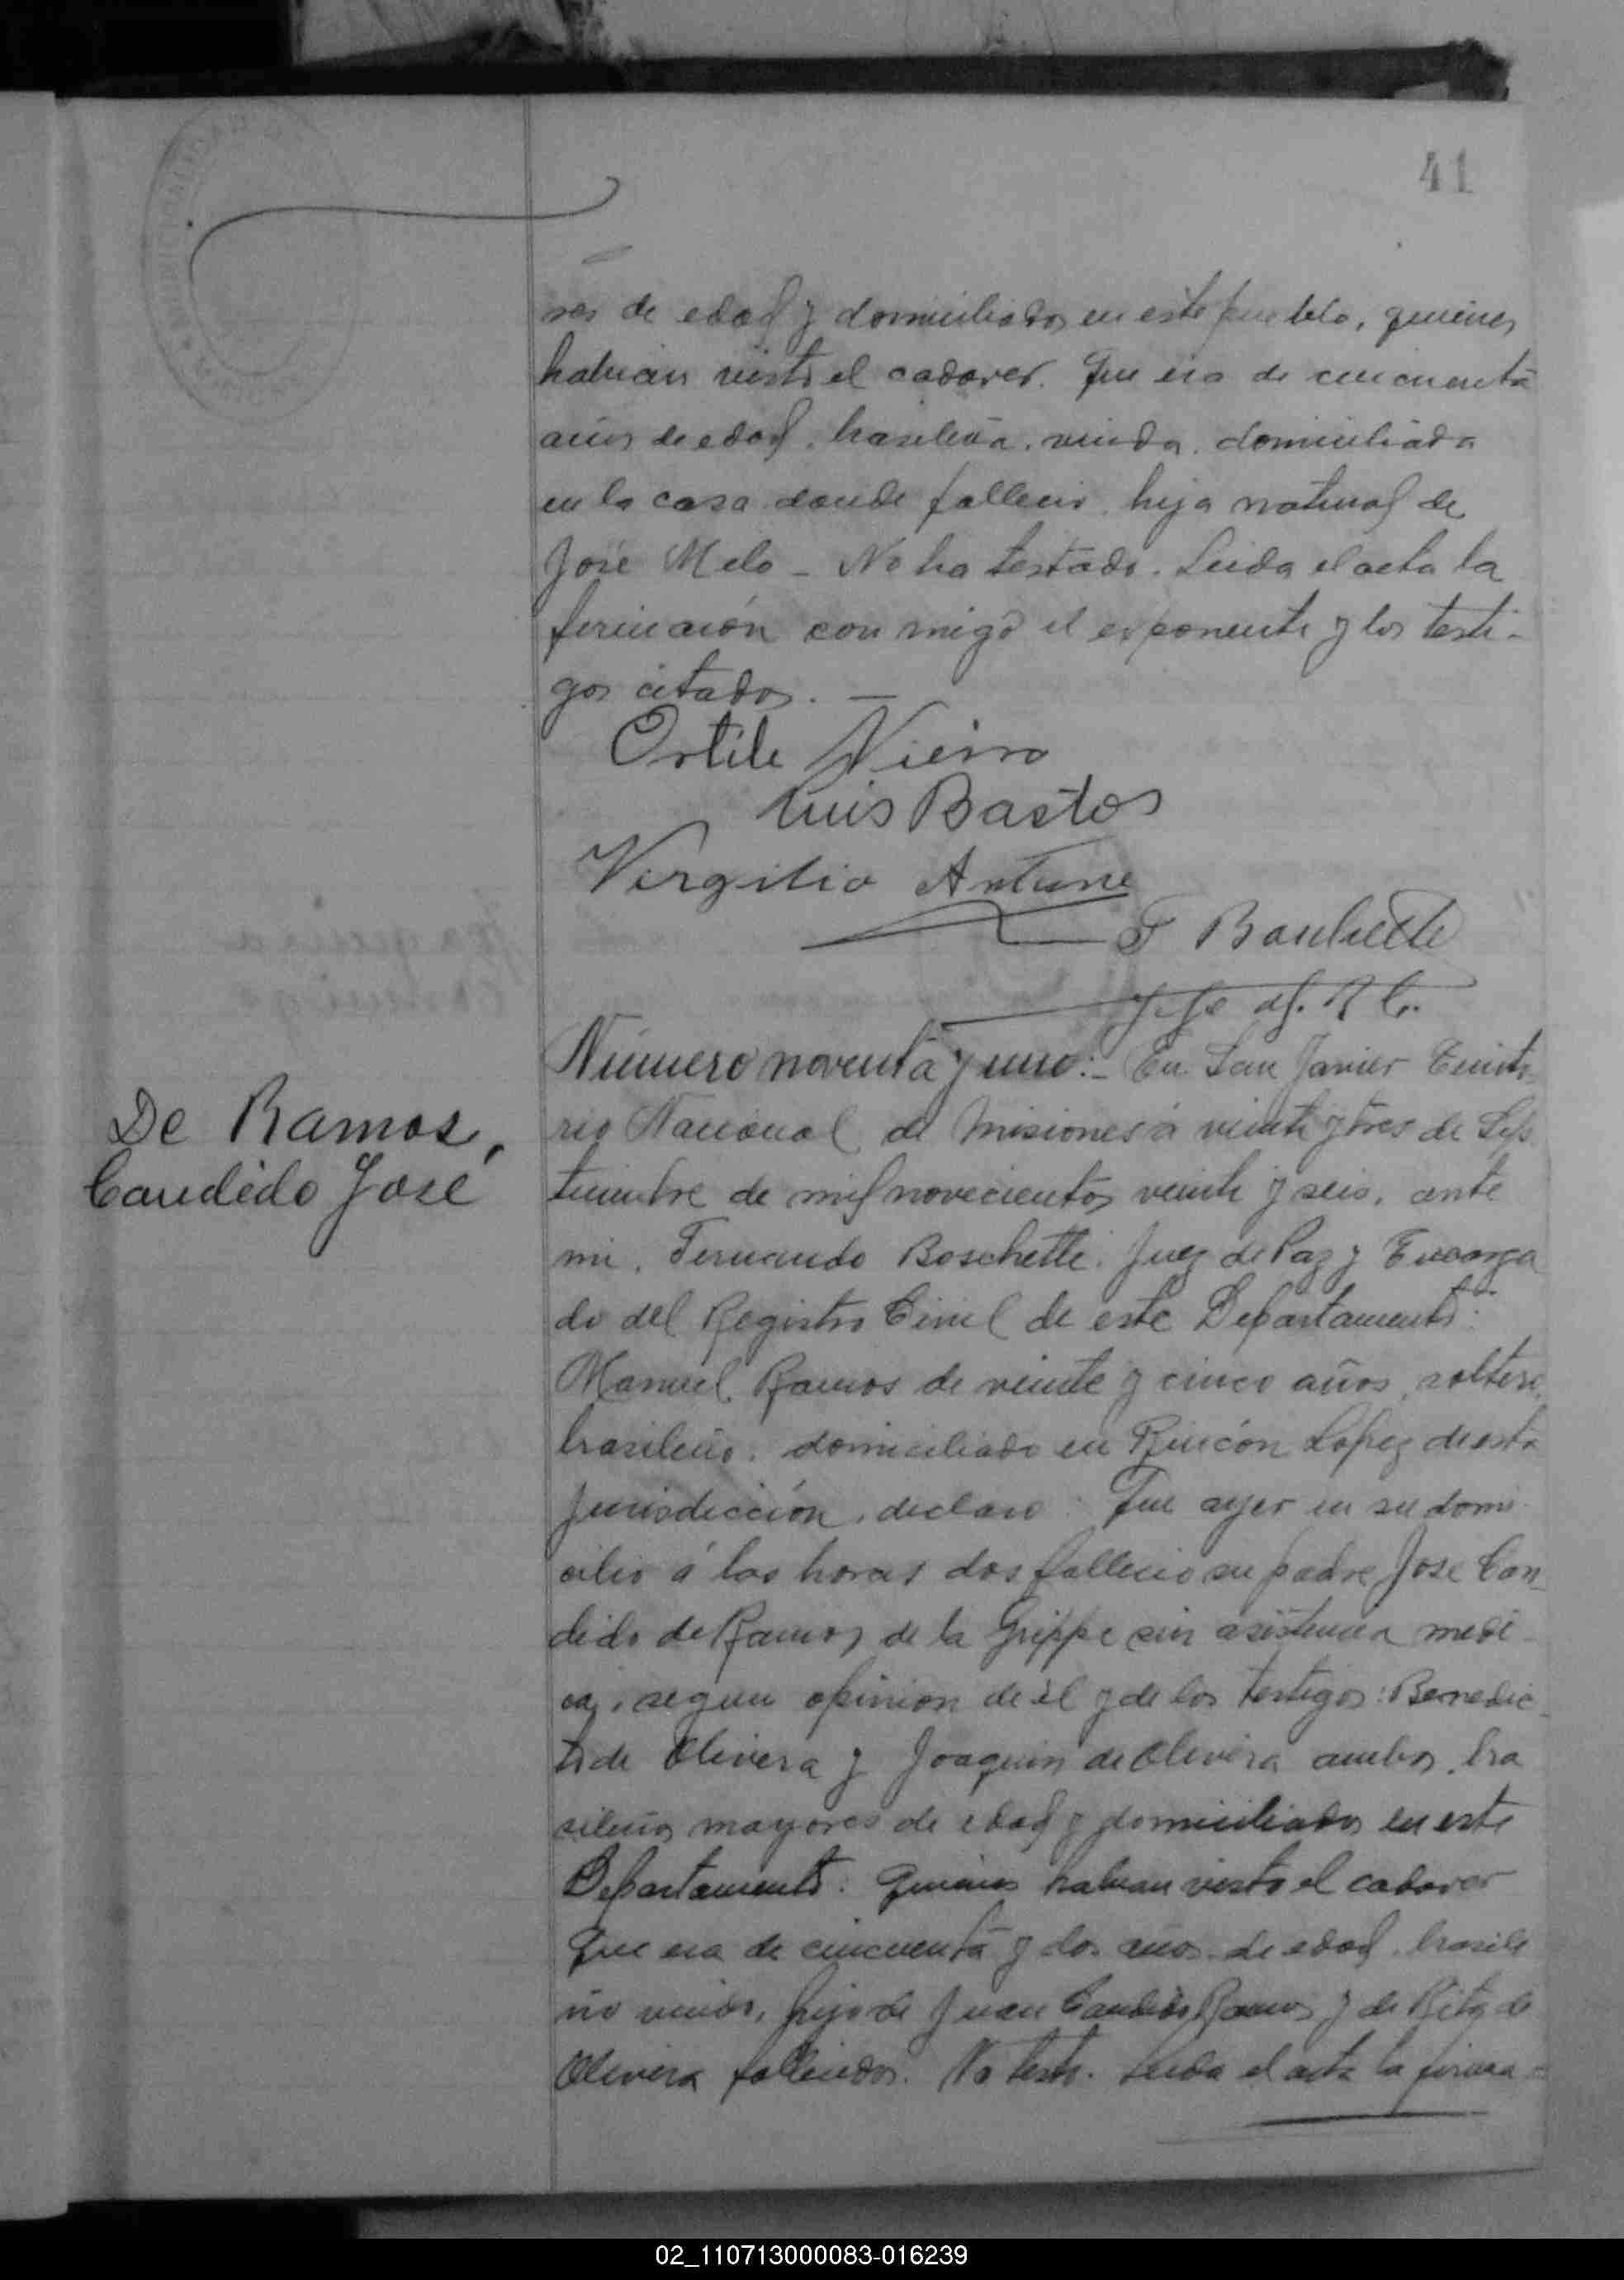 41
res de edad y domiciliados en este pueblo, quienes
habian visto el cadaver. Que era de cincuenta
años de edad, brasileña, viuda, domiciliada
en la casa donde fallecio, hija natural de
José Melo - No ha testado. Leida el acta la
firmaron con migo el exponente y los testi-
gos citados. —
Ortile Vieiro
Luis Bastos
Vergilio Antune
F Boschette
Jefe del R C.
Número noventa y uno:- En San Javier Territo-
rio Nacional de Misiones á veinte y tres de Sep
tiembre de mil novecientos veinte y seis, ante
mi, Fernando Boschette, Juez de Paz y Encarga
do del Registro Civil de este Departamento:
Manuel Ramos de veinte y cinco años, soltero,
brasileño, domiciliado en Rincón Lopez de esta
Jurisdicción, declaro: Que ayer en su domi-
cilio á las horas dos fallecio su padre Jose Can-
dido de Ramos de la Grippe sin asistencia medi-
ca, segun opinion de él y de los testigos: Benedic-
to de Olivera y Joaquin de Olivera ambos bra
sileños mayores de edad y domiciliados en este
Departamento. Quienes habian visto el cadaver
Que era de cincuenta y dos años de edad, brasile
ño viudo, hijo de Juan Candido Ramos y de Rita de
Olivera fallecidos. No testo. Leida el acta la firma-
De Ramos,
Candido José
02_110713000083-016239